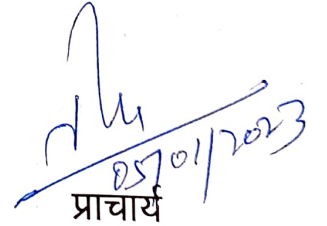 05/01/2023
प्राचार्य